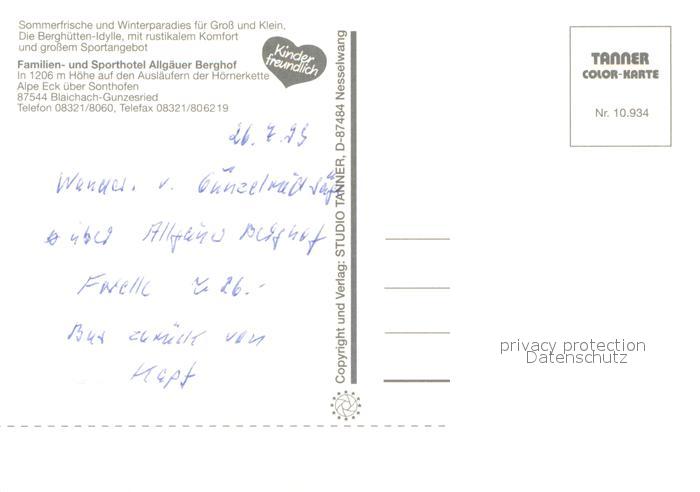 Sommerfrische und Winterparadies für Groß und Klein,
Die Berghütten-Idylle, mit rustikalem Komfort
und großem Sportangebot
Kinder
freundlich
Familien- und Sporthotel Allgäuer Berghof
In 1206 m Höhe auf den Ausläufern der Hörnerkette
Alpe Eck über Sonthofen
87544 Blaichach-Gunzesried
Telefon 08321/8060, Telefax 08321/806219
Wander. v.
über Allgäuer Berghof
Forelle 26.-
Bus zurück von
Kapf
Copyright und Verlag: STUDIO TANNER, D-87484 Nesselwang
TANNER
COLOR-KARTE
Nr. 10.934
privacy protection
Datenschutz